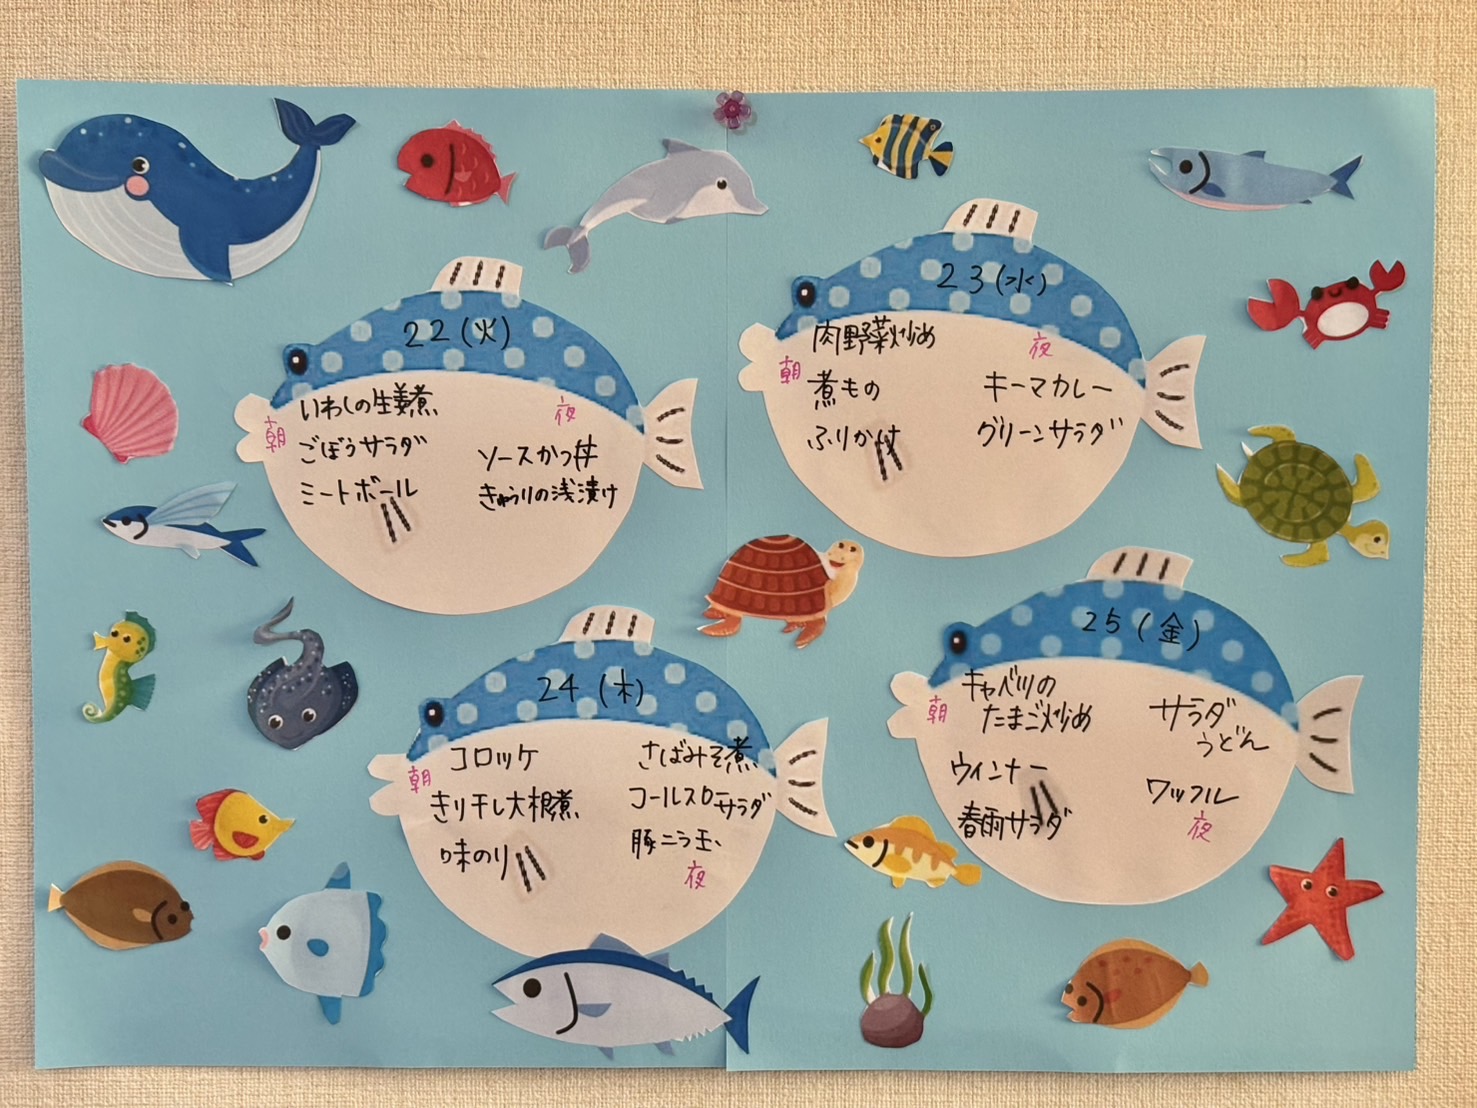 22(火)
朝
いわしの生姜煮
ごぼうサラダ
ミートボール
夜
ソースかつ丼
きゅうりの浅漬け
23(水)
朝
肉野菜炒め
煮もの
ふりかけ
夜
キーマカレー
グリーンサラダ
24(木)
朝
コロッケ
きり干し大根煮
味のり
さばみそ煮
コールスローサラダ
豚ニラ玉
夜
25(金)
朝
キャベツの
たまご炒め
ウィンナー
春雨サラダ
サラダ
うどん
ワッフル
夜